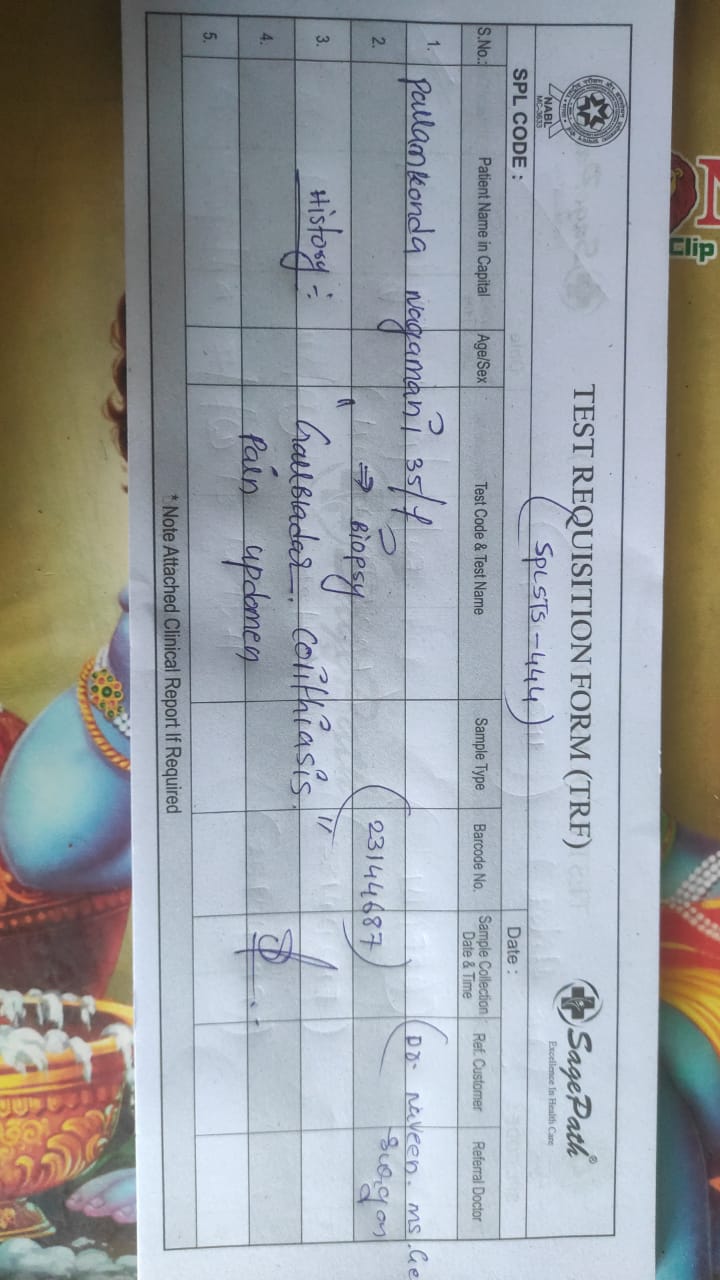 NABL
MC-3633
TEST REQUISITION FORM (TRF)
SagePath®
Excellence In Health Care
SPL CODE :
(SPLSTS-444)
Date :
S.No.:
Patient Name in Capital
Age/Sex
Test Code & Test Name
Sample Type
Barcode No.
Sample Collection Date & Time
Ref. Customer
Referral Doctor
1. Pallamkonda Nagamani 35/f
(Dr. Naveen. ms.Ge
2. ⇒ Biopsy (23144687)
3. History:- " Gallbladar. Colithiasis. "
4. Pain updomen
5.
* Note Attached Clinical Report If Required
Clip